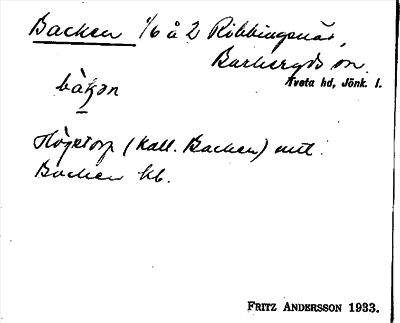 Backen 1/6 å 2 Ribbingsnäs,
Barkeryds sn.
Tveta hd, Jönk. l.
bàk̥ən
Högstorp (kall. Backen) enl.
Backen kb.
FRITZ ANDERSSON 1933.